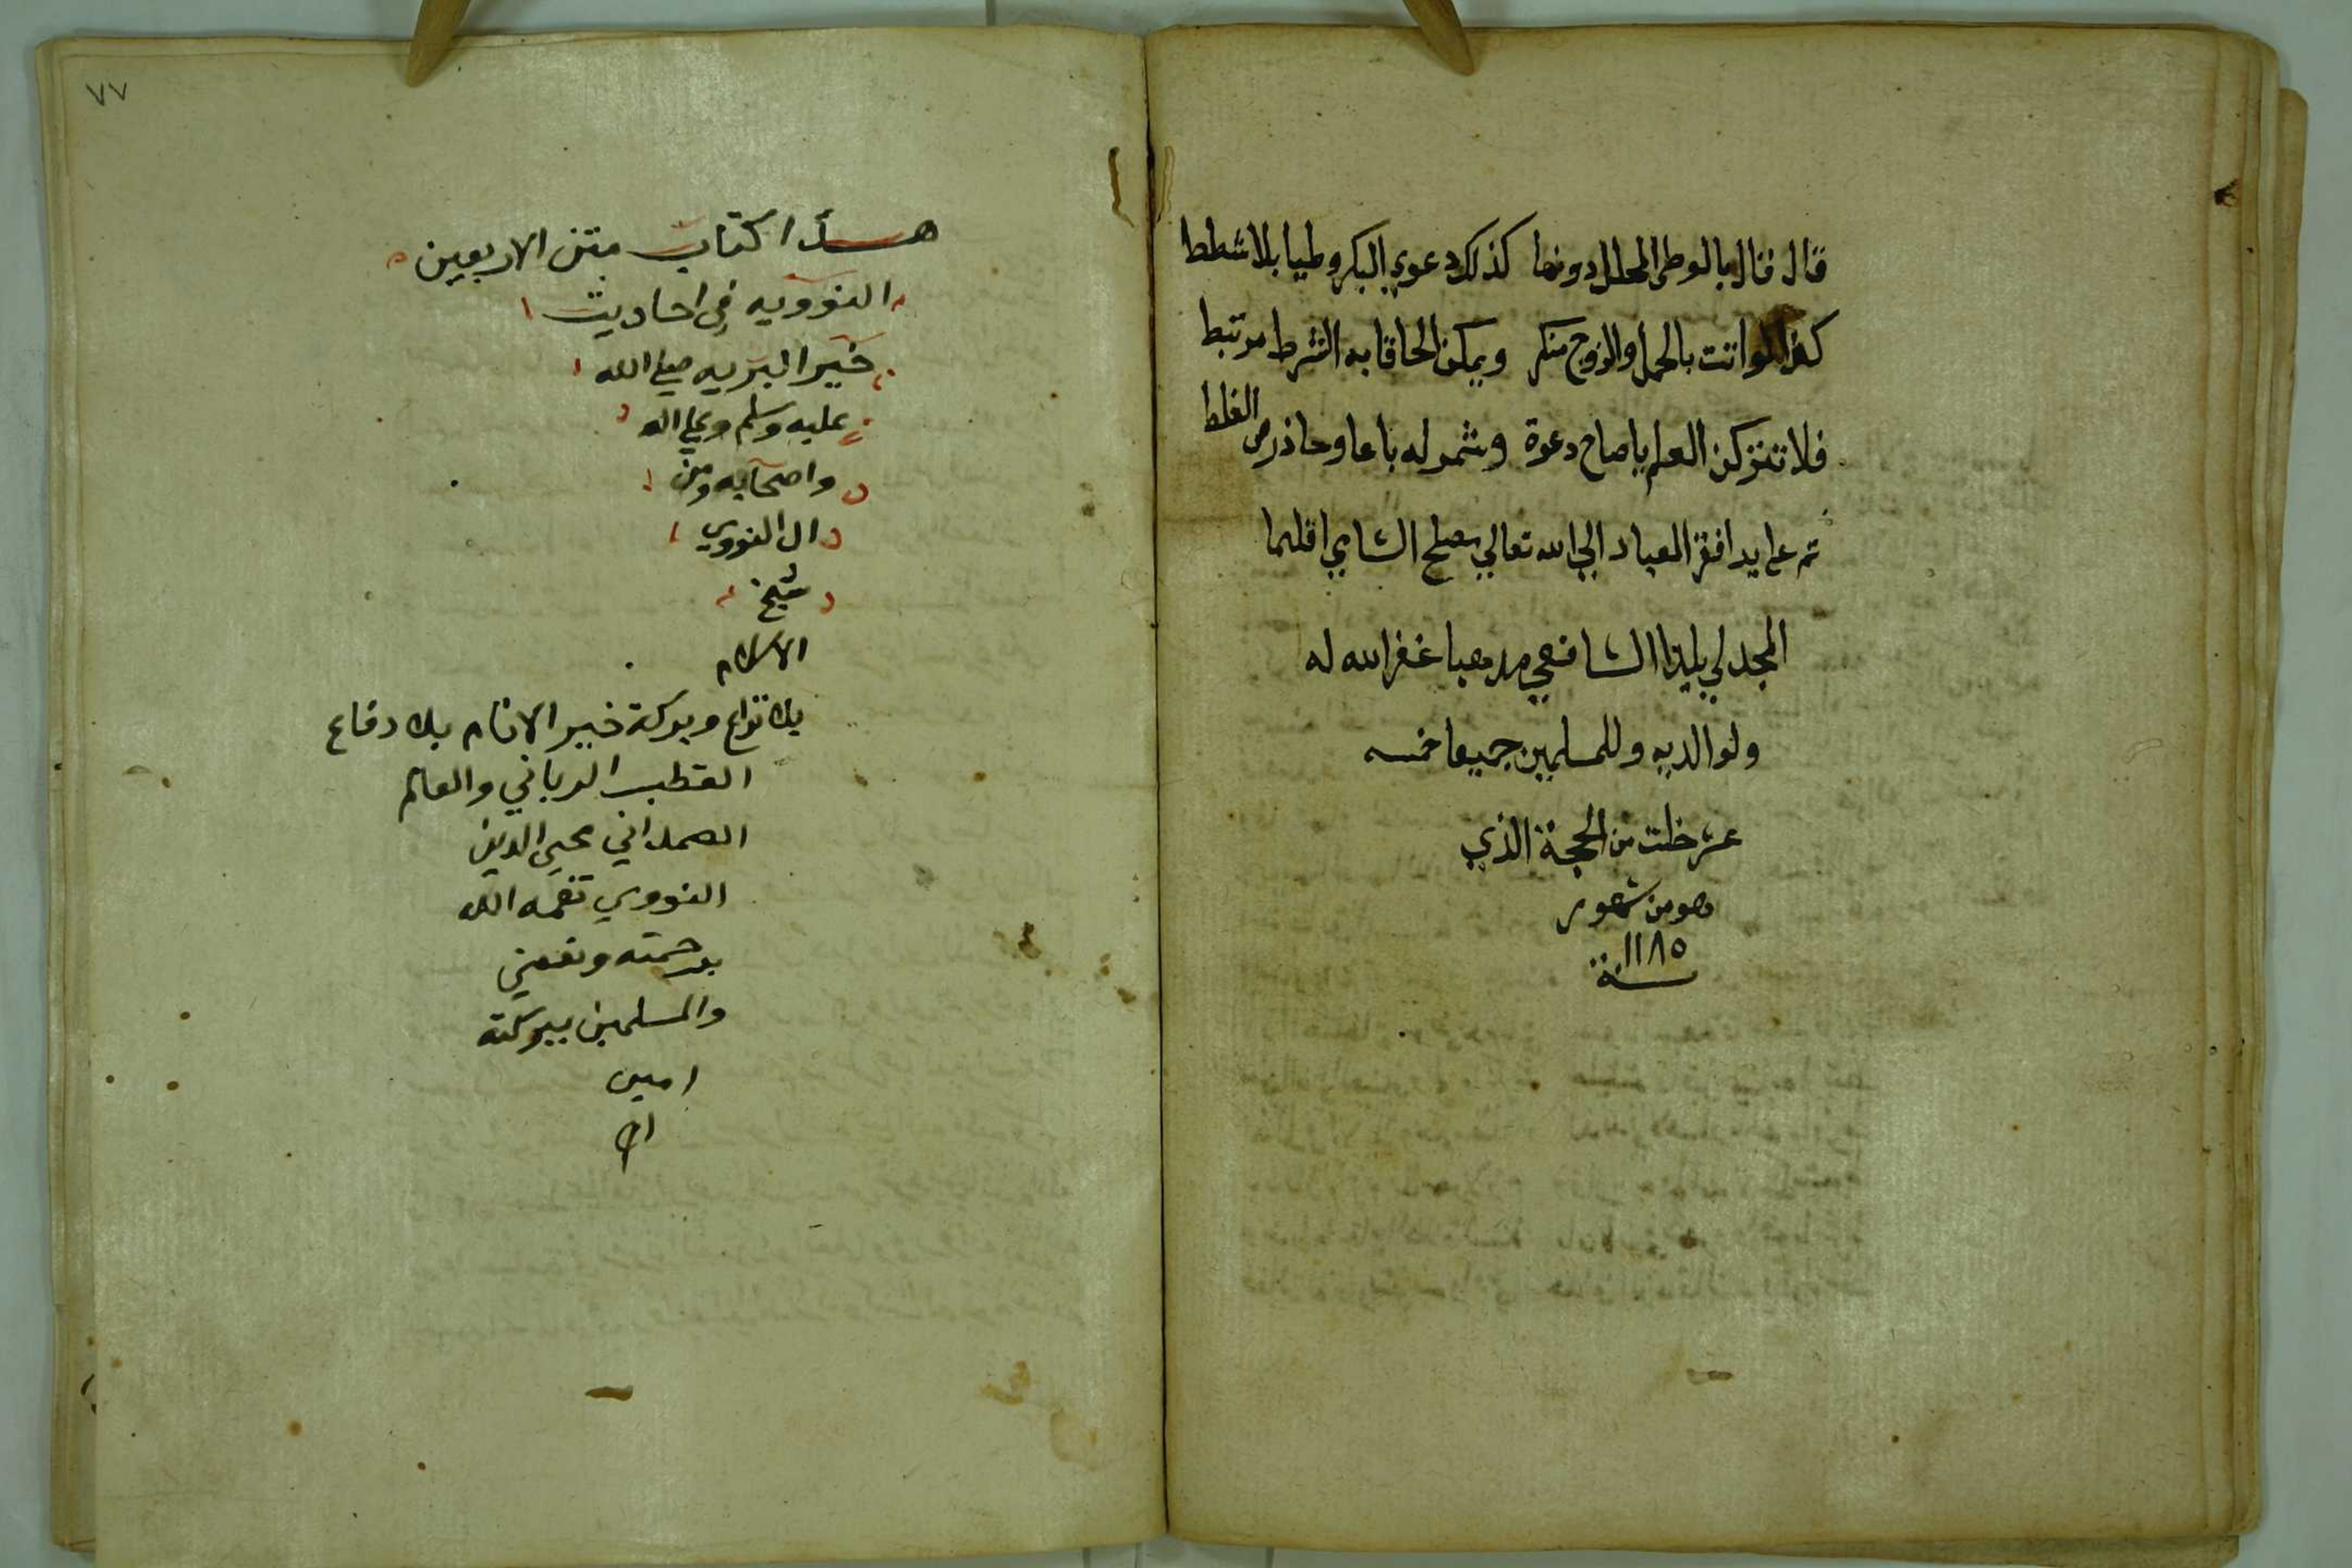 قال فقال بالوطئ المحلل دونها كذلك دعوي البكر وطيا بلا شطط
كذا لو اتت بالحمل والزوج منكر ويمكن الحاقا به الشرط مرتبط
فلا تتركن العلم يا صاح دعوة وشمر له باعا وحاذر من الغلط
تم علي يد افقر العباد الي الله تعالي مصلح الشامي اقليما
المجدلي بلدا الشافعي مذهبا غفر الله له
ولوالديه وللمسلمين جميعا خمسه
عشر خلت من الحجة الذي
هو من شهور
سنة ١١٨٥
٧٧
هذا كتاب متن الاربعين
النوويه في احاديث
خير البريه صلي الله
عليه وسلم وعلي اله
واصحابه ومن
ال النووي
شيخ
الاسلام
بلا نزاع وبركة خير الانام بلا دفاع
القطب الرباني والعالم
الصمداني محيي الدين
النووي تغمده الله
برحمته ونفعني
والمسلمين ببركته
امين
ام